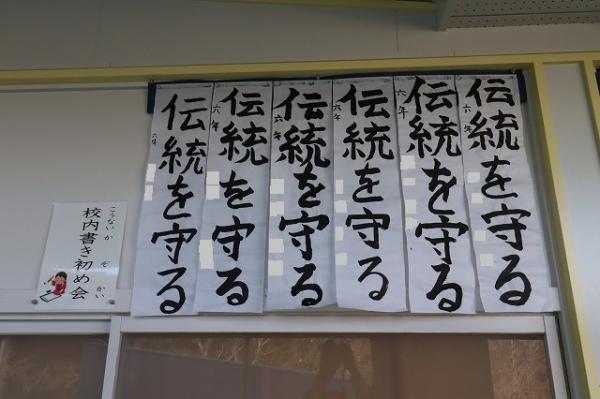 伝統を守る
六年
伝統を守る
六年
伝統を守る
六年
伝統を守る
六年
伝統を守る
六年
伝統を守る
六年
校内書き初め会
こうないか ぞ かい